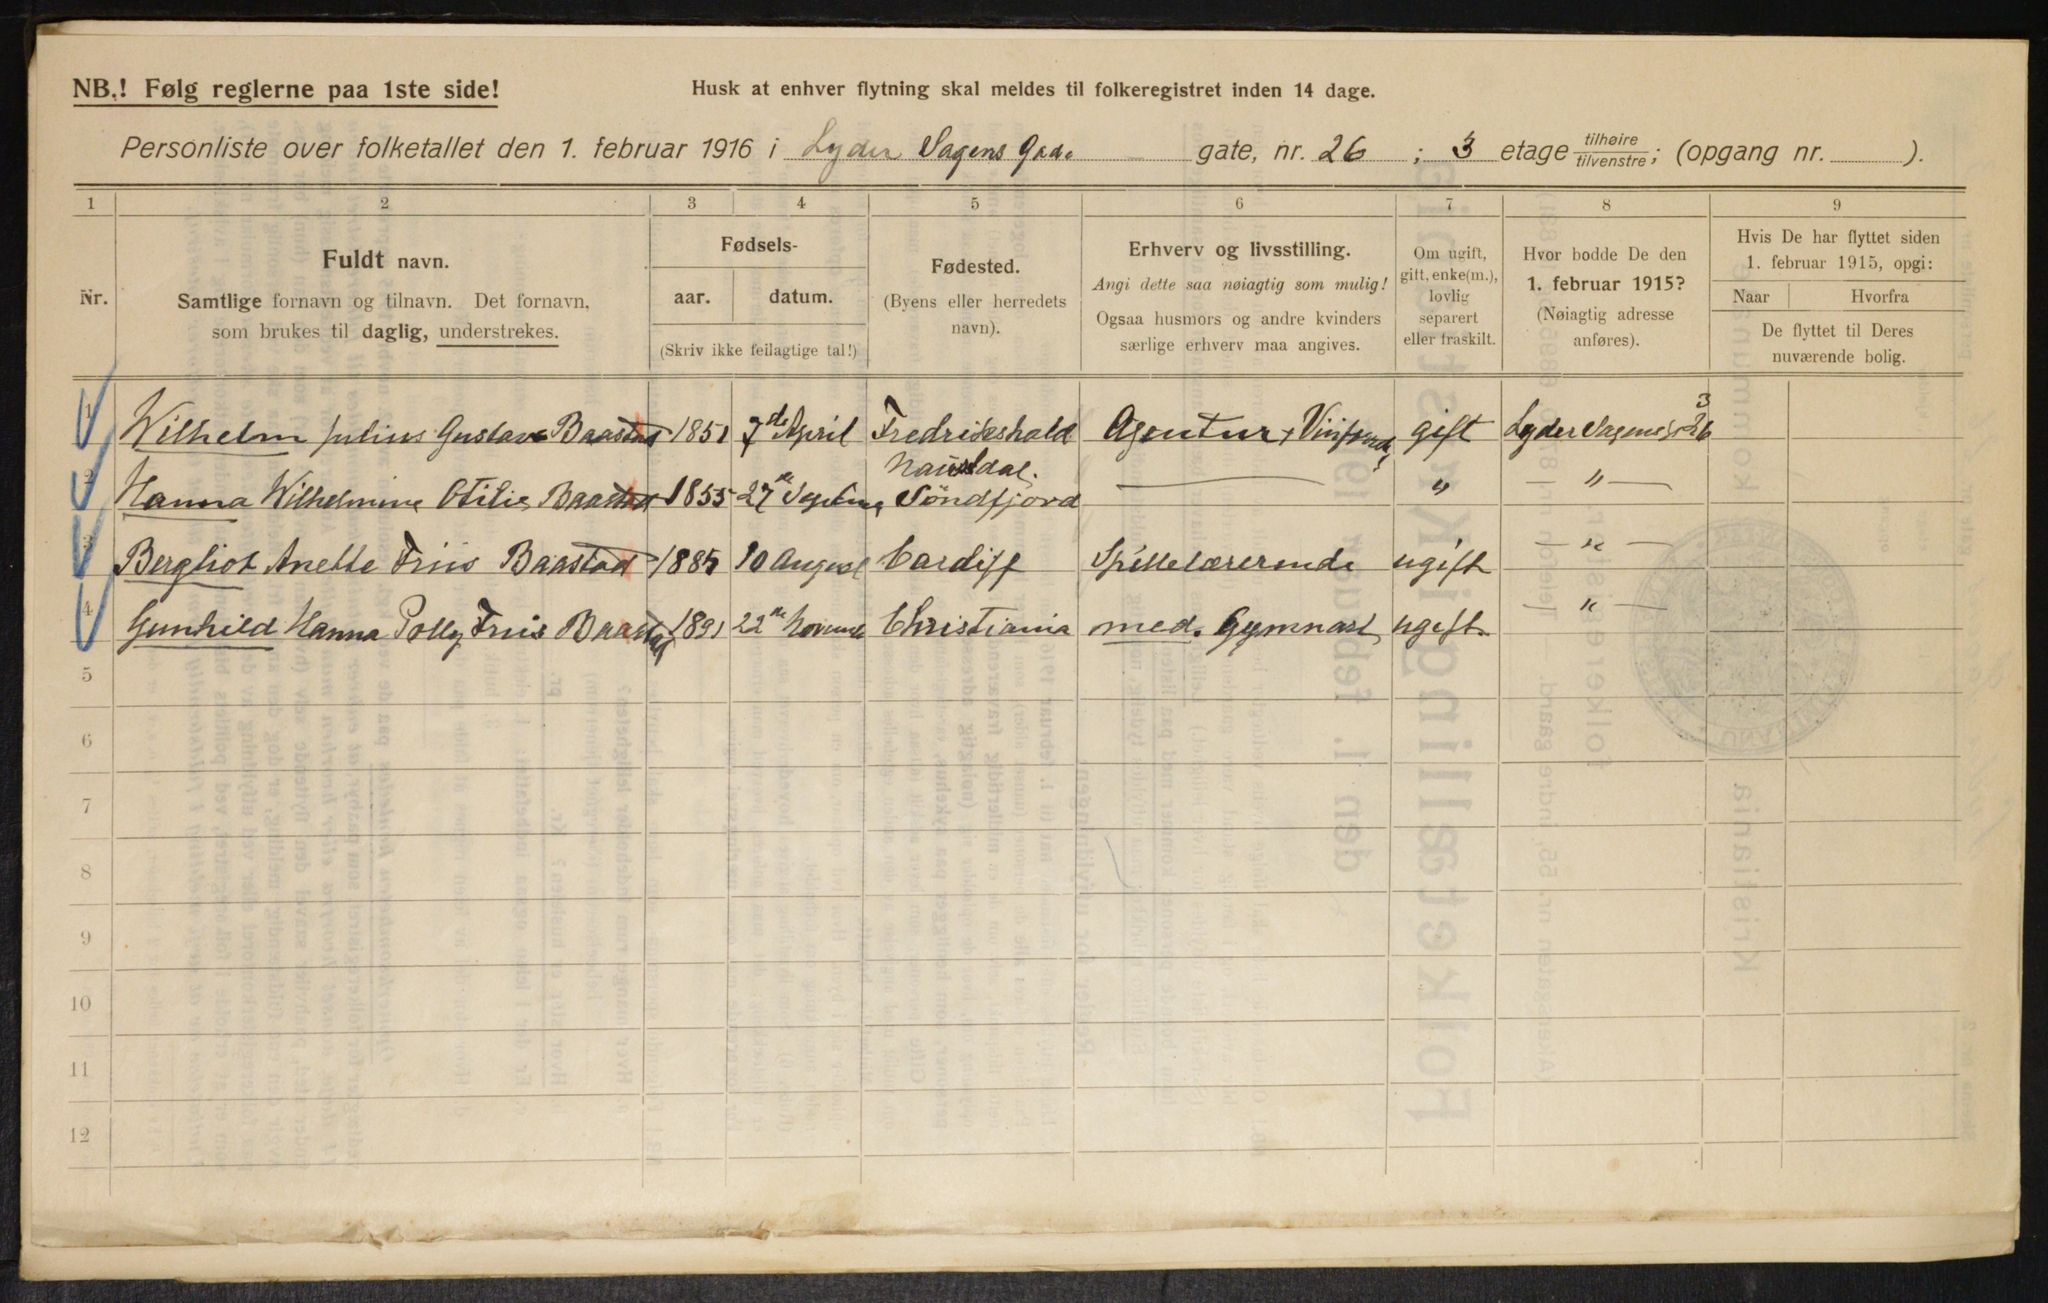 NB.! Følg reglerne paa 1ste side! Husk at enhver flytning skal meldes til folkeregistret inden 14 dage.
Personliste over folketallet den 1. februar 1916 i Lyder Sagens Gade gate, nr. 26 ; 3 etage tilhøire tilvenstre; (opgang nr. ).
1 2 3 4 5 6 7 8 9
Nr.
Fuldt navn.
Samtlige fornavn og tilnavn. Det fornavn,
som brukes til daglig, understrekes.
Fødsels-
aar. datum.
(Skriv ikke feilagtige tal!)
Fødested.
(Byens eller herredets
navn).
Erhverv og livsstilling.
Angi dette saa nøiagtig som mulig!
Ogsaa husmors og andre kvinders
særlige erhverv maa angives.
Om ugift,
gift, enke(m.),
lovlig
separert
eller fraskilt.
Hvor bodde De den
1. februar 1915?
(Nøiagtig adresse
anføres).
Hvis De har flyttet siden
1. februar 1915, opgi:
Naar Hvorfra
De flyttet til Deres
nuværende bolig.
1 Wilhelm Julius Gustav Baastad 1851 7de April Fredrikshald Agentur gift Lyder Sagensg 26 3
2 Hanna Wilhelmine Otilie Baastad 1855 27de Naustdal. Söndfjord — " — " —
3 Bergliot Anette Friis Baastad 1885 10 August Cardiff Spillelærerinde ugift — " —
4 Gunhild Hanna Polly Friis Baastad 1891 22de Christiania med. Gymnast ugift. — " —
5
6
7
8
9
10
11
12